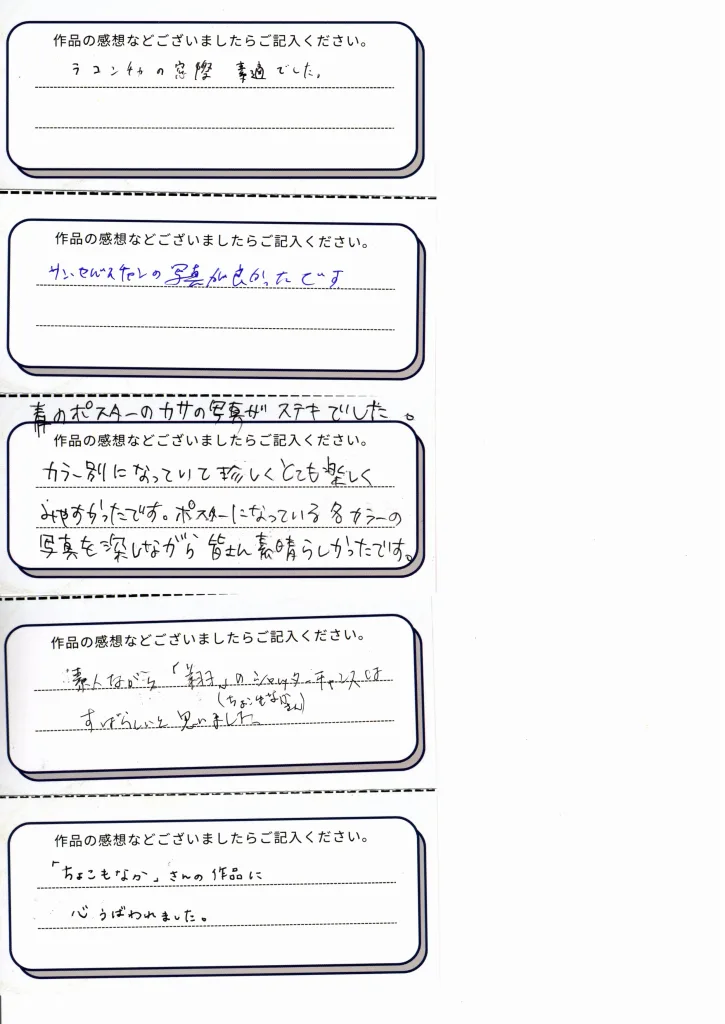 作品の感想などございましたらご記入ください。
ラコンチャの窓際 素適でした。
作品の感想などございましたらご記入ください。
サン・セバスチャンの写真が良かったです
青のポスターのカサの写真が ステキでした。
作品の感想などございましたらご記入ください。
カラー別になっていて珍しくとても楽しく
みやすかったです。ポスターになっている各カラーの
写真を探しながら 皆さん素晴らしかったです。
作品の感想などございましたらご記入ください。
素人ながら「翔」のシャッターチャンスは
(ちょこもなかさん)
すばらしいと思いました。
作品の感想などございましたらご記入ください。
「ちょこもなか」さんの作品に
心うばわれました。